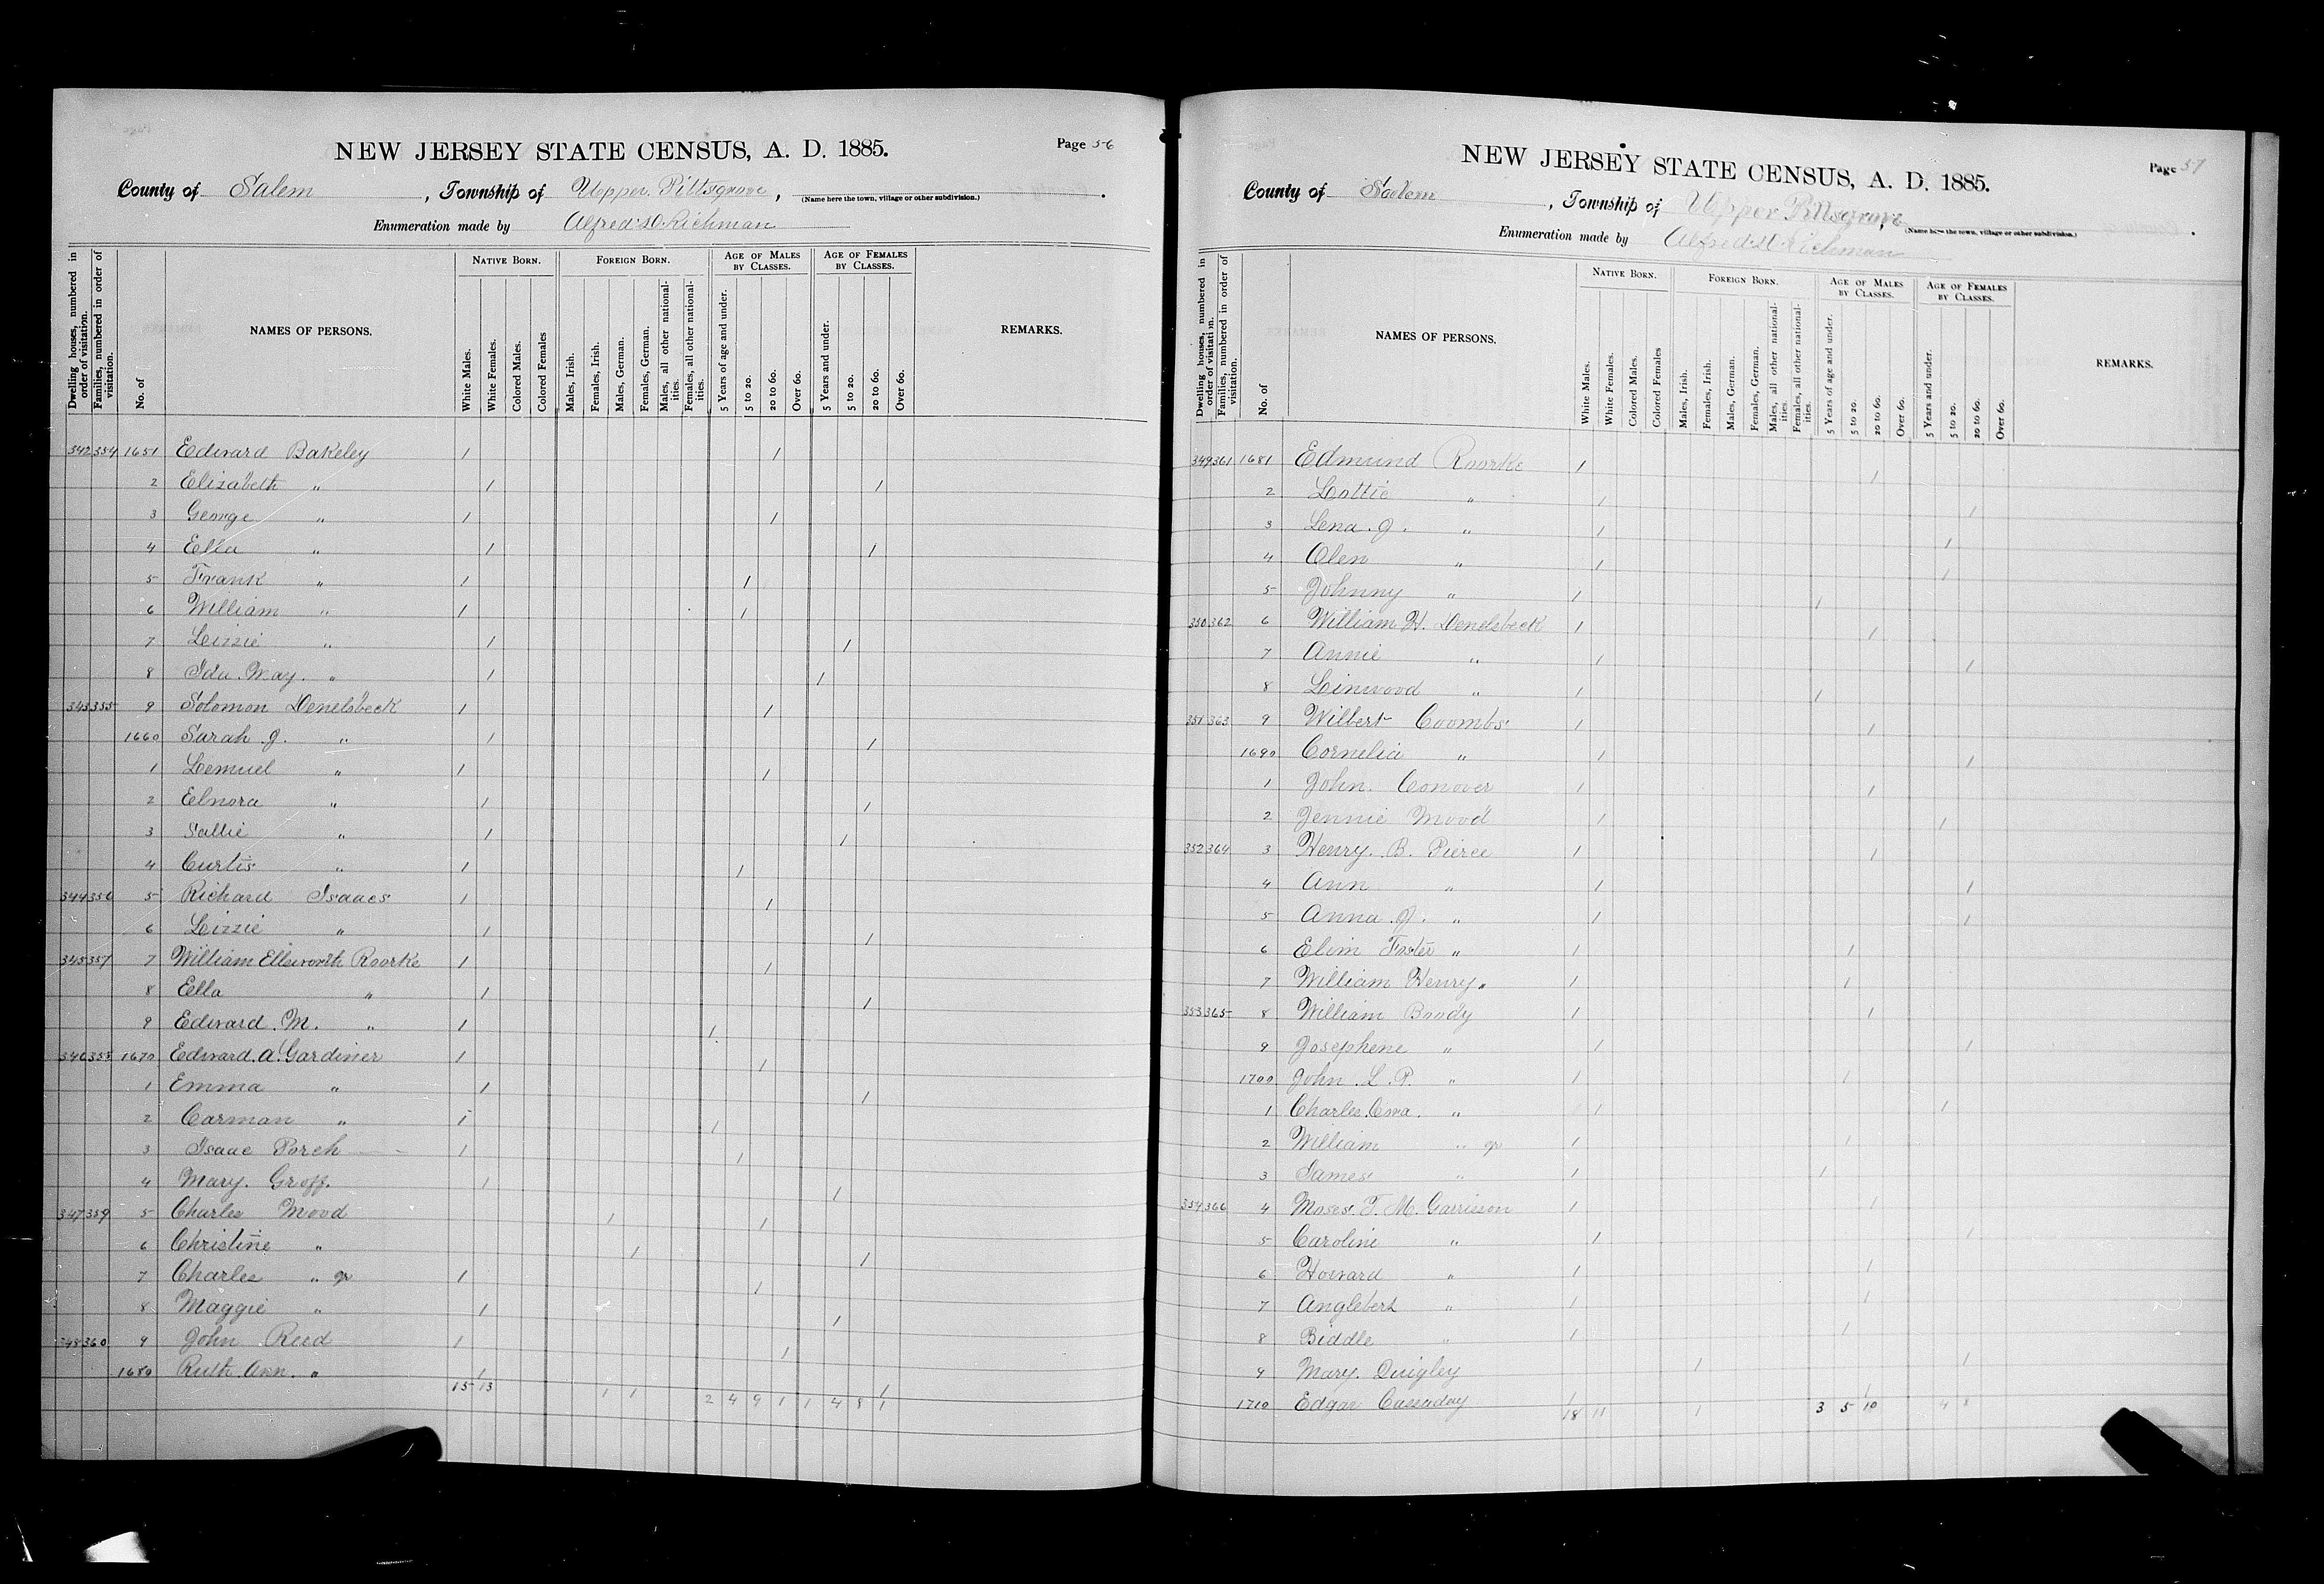 NEW JERSEY STATE CENSUS, A. D. 1885.
Page 56
County of Salem, Township of Upper Pittsgrove, (Name here the town, village or other subdivision.)
Enumeration made by Alfred D. Richman
Dwelling houses, numbered in order of visitation.
Families, numbered in order of visitation.
No. of
NAMES OF PERSONS.
NATIVE BORN.
White Males.
White Females.
Colored Males.
Colored Females
FOREIGN BORN.
Males, Irish.
Females, Irish.
Males, German.
Females, German.
Males, all other nationalities.
Females, all other nationalities.
AGE OF MALES BY CLASSES.
5 Years of age and under.
5 to 20.
20 to 60.
Over 60.
AGE OF FEMALES BY CLASSES.
5 Years and under.
5 to 20.
20 to 60.
Over 60.
REMARKS.
342 354 1651 Edward Bakeley 1 1
2 Elizabeth " 1 1
3 George " 1 1
4 Ella " 1 1
5 Frank " 1 1
6 William " 1 1
7 Lizzie " 1 1
8 Ida. May. " 1 1
343 355 9 Solomon Denelsbeck 1 1
1660 Sarah J. " 1 1
1 Lemuel " 1 1
2 Elnora " 1 1
3 Sallie " 1 1
4 Curtis " 1 1
344 356 5 Richard Isaacs 1 1
6 Lizzie " 1 1
345 357 7 William Ellsworth Roorke 1 1
8 Ella " 1 1
9 Edward. M. " 1 1
346 358 1670 Edward. A. Gardiner 1 1
1 Emma " 1 1
2 Carman " 1 1
3 Isaac Porch 1 1
4 Mary. Groff. 1 1
347 359 5 Charles Mood 1 1
6 Christine " 1 1
7 Charles " Jr 1 1
8 Maggie " 1 1
348 360 9 John Reed 1 1
1680 Ruth. Ann. " 1 1
15 13 1 1 2 4 9 1 1 4 8 1
NEW JERSEY STATE CENSUS, A. D. 1885.
Page 57
County of Salem, Township of Upper Pittsgrove, (Name here the town, village or other subdivision.)
Enumeration made by Alfred D. Richman
Dwelling houses, numbered in order of visitation.
Families, numbered in order of visitation.
No. of
NAMES OF PERSONS.
NATIVE BORN.
White Males.
White Females.
Colored Males.
Colored Females
FOREIGN BORN.
Males, Irish.
Females, Irish.
Males, German.
Females, German.
Males, all other nationalities.
Females, all other nationalities.
AGE OF MALES BY CLASSES.
5 Years of age and under.
5 to 20.
20 to 60.
Over 60.
AGE OF FEMALES BY CLASSES.
5 Years and under.
5 to 20.
20 to 60.
Over 60.
REMARKS.
349 361 1681 Edmund Roorke 1 1
2 Lottie " 1 1
3 Lena. J. " 1 1
4 Olen " 1 1
5 Johnny " 1 1
350 362 6 William H. Denelsbeck 1 1
7 Annie " 1 1
8 Linwood " 1 1
351 363 9 Wilbert Coombs 1 1
1690 Cornelia " 1 1
1 John. Conover 1 1
2 Jennie Mood 1 1
352 364 3 Henry. B. Pierce 1 1
4 Ann " 1 1
5 Anna. J. " 1 1
6 Elim Foster " 1 1
7 William Henry " 1 1
353 365 8 William Brody 1 1
9 Josephene " 1 1
1700 John. L. P. " 1 1
1 Charles. " 1 1
2 William " Jr 1 1
3 James " 1 1
354 366 4 Moses. T. M. Garrison 1 1
5 Caroline " 1 1
6 Howard " 1 1
7 Anglebert " 1 1
8 Biddle " 1 1
9 Mary. Quigley 1 1
1710 Edgar Cassaday 1 1
18 11 1 3 5 10 4 8